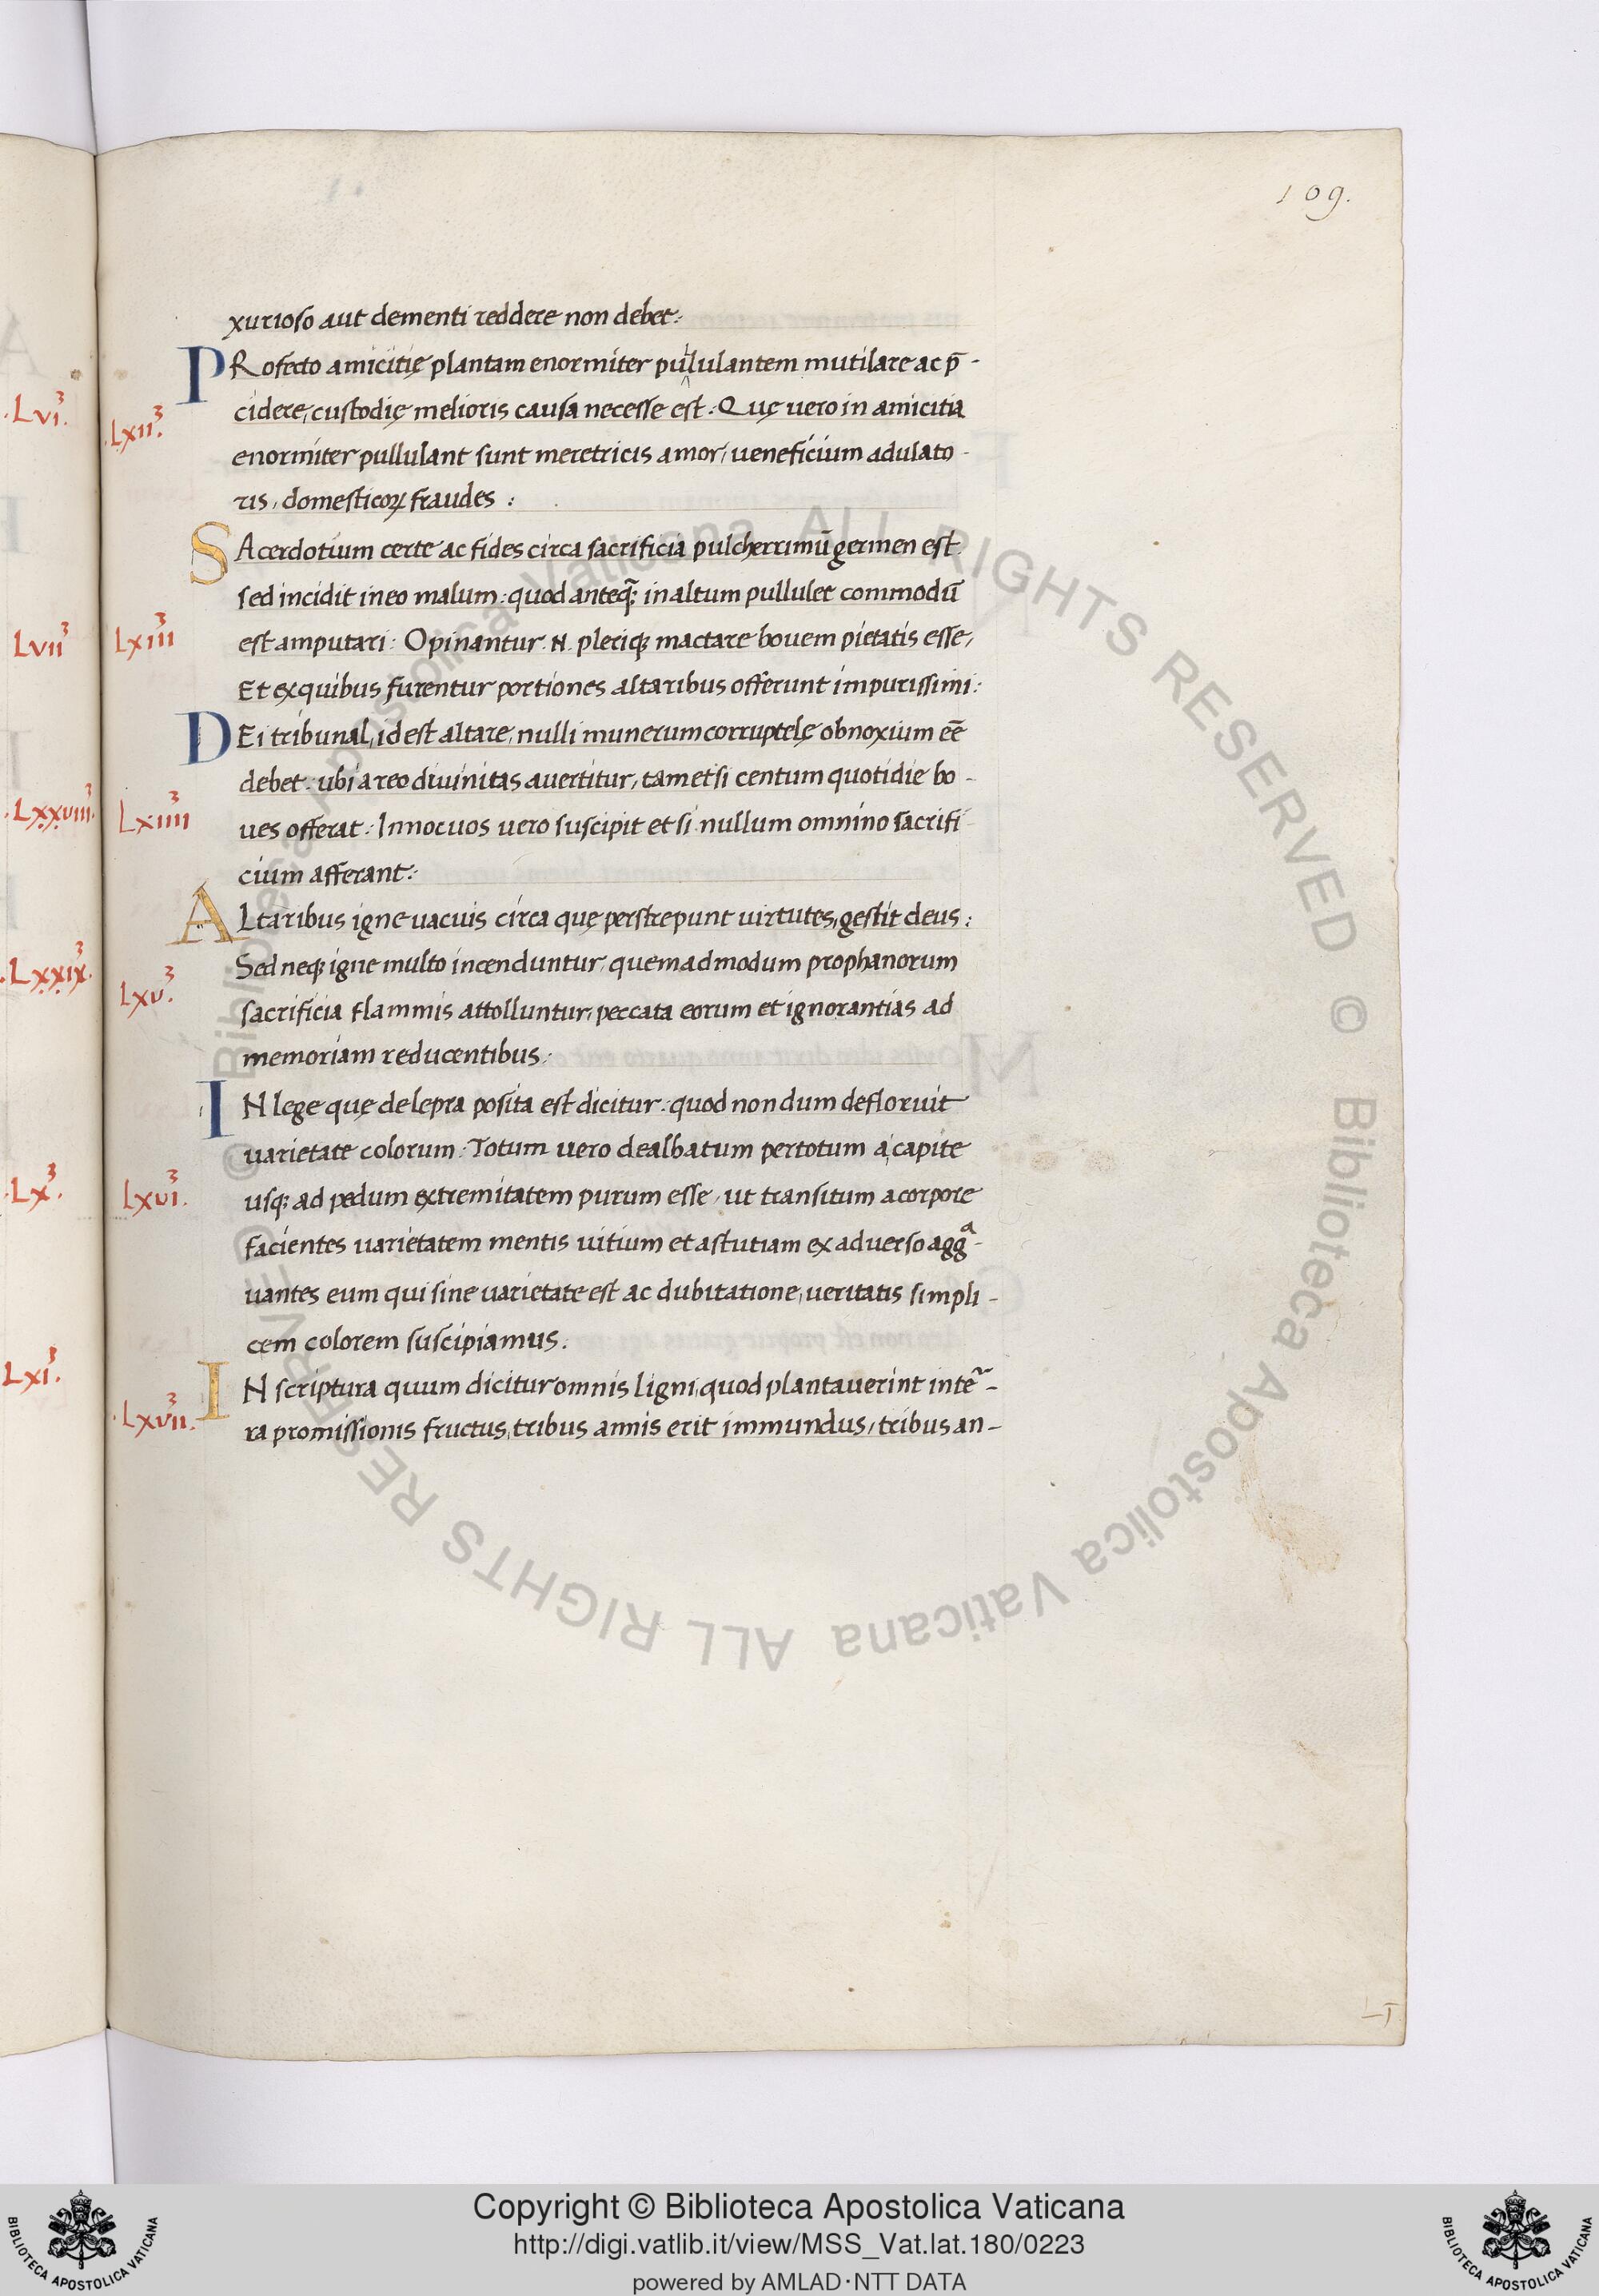 109.
xurioso aut dementi reddere non debet:
PRofecto amicitię plantam enormiter pullulantem mutilare ac p̄-
cidere, custodię melioris causa necesse est: Quę uero in amicitia
.Lxii.³
enormiter pullulant sunt meretricis amor, ueneficium adulato-
ris, domesticoꝝ fraudes:
SAcerdotium certe ac fides circa sacrificia pulcherrimū germen est
sed incidit in eo malum: quod anteq̃; in altum pullulet commodū
Lxiii³
est amputari: Opinantur .N. pleriq; mactare bouem pietatis esse,
Et ex quibus furentur portiones altaribus offerunt impurissimi:
DEi tribunal, id est altare, nulli munerum corruptelę obnoxium eē
debet: ubi a reo diuinitas auertitur, tametsi centum quotidie bo-
Lxiiii³
ues offerat: Innocuos uero suscipit et si nullum omnino sacrifi
cium afferant:
ALtaribus igne uacuis circa quę perstrepunt uirtutes, gestit deus:
Sed neq; igne multo incenduntur, quemadmodum prophanorum
Lxv.³
sacrificia flammis attolluntur, peccata eorum et ignorantias ad
memoriam reducentibus:
IN lege quę de lepra posita est dicitur: quod nondum defloruit
uarietate colorum: Totum uero dealbatum per totum a capite
Lxvi.³
usq; ad pedum extremitatem purum esse, ut transitum a corpore
facientes uarietatem mentis uitium et astutiam ex aduerso aggᵃ-
uantes eum qui sine uarietate est ac dubitatione, ueritatis simpli-
cem colorem suscipiamus.
IN scriptura quum dicitur omnis ligni, quod plantauerint in te͂-
.Lxvii.³
ra promissionis fructus, tribus annis erit immundus, tribus an-
.Lvi.³
Lvii³
.Lxxviii.³
.Lxxix.³
.Lx.³
Lxi.³
© Biblioteca Apostolica Vaticana ALL RIGHTS RESERVED © Biblioteca Apostolica Vaticana ALL RIGHTS RESERVED
Copyright © Biblioteca Apostolica Vaticana
http://digi.vatlib.it/view/MSS_Vat.lat.180/0223
powered by AMLAD·NTT DATA
BIBLIOTECA APOSTOLICA VATICANA
BIBLIOTECA APOSTOLICA VATICANA